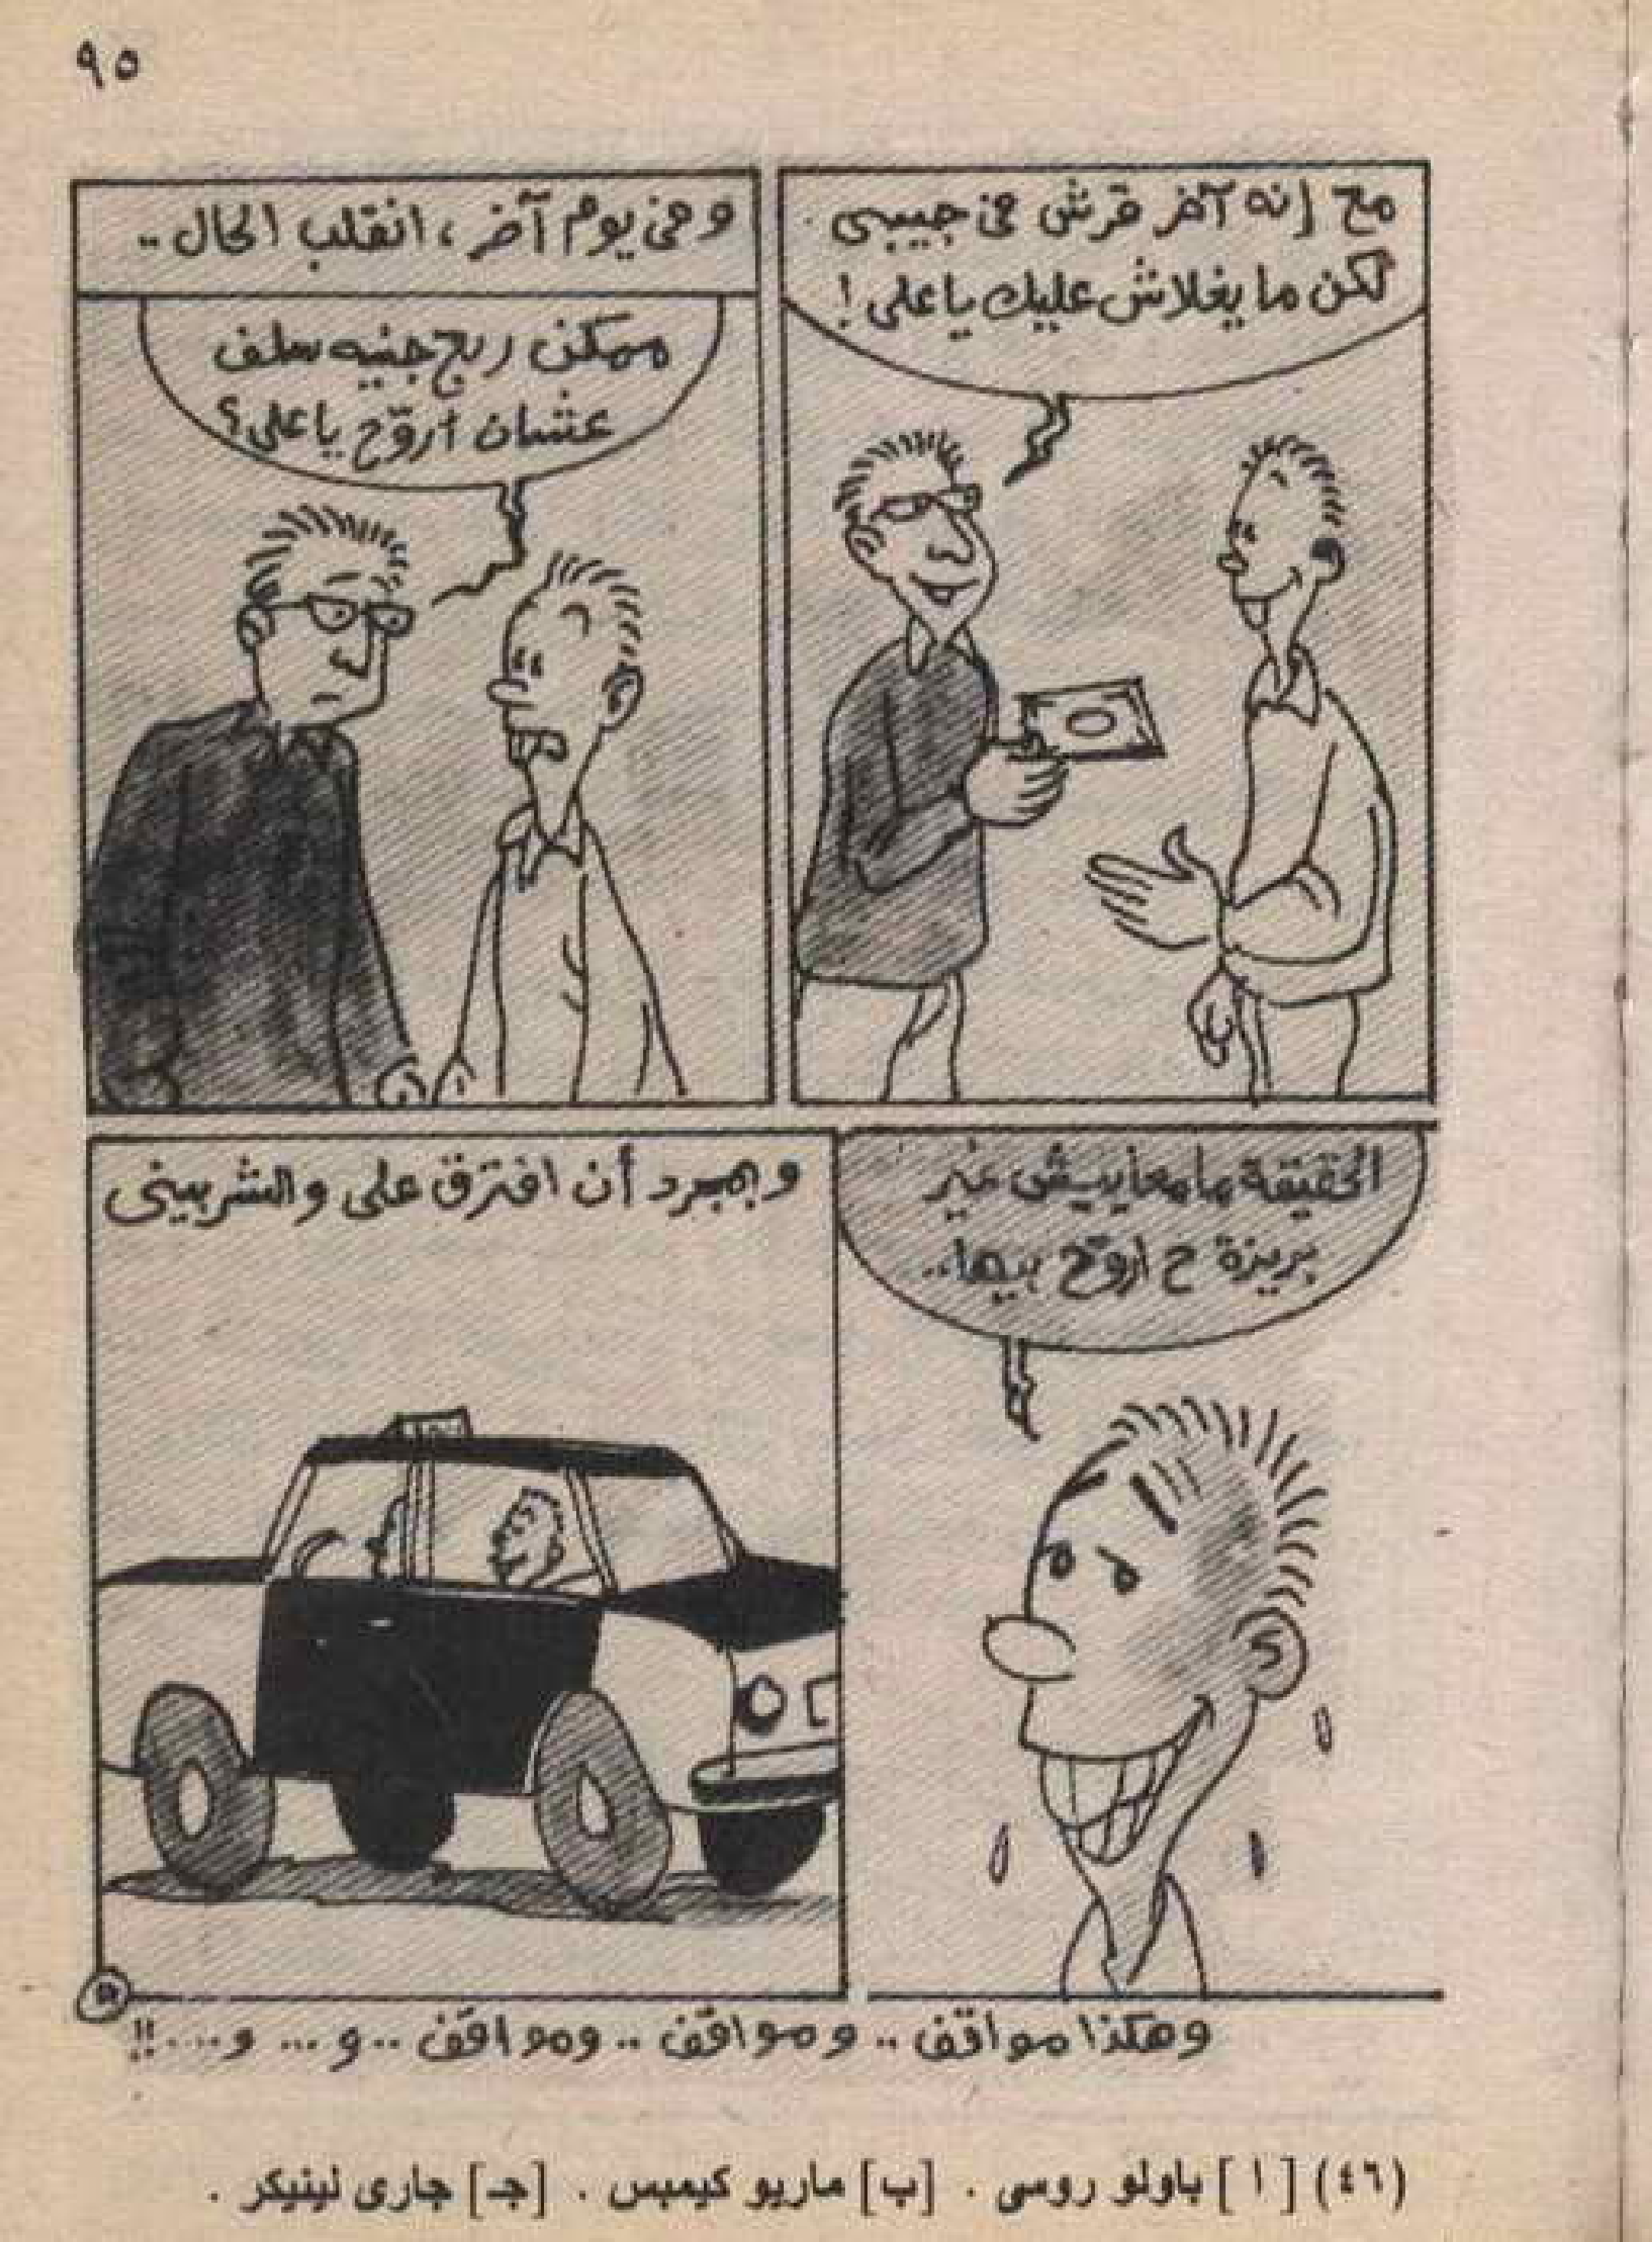 ٩٥
مع إنه آخر قرش فى جيبى
لكن ما يغلاش عليك يا على !
وفى يوم آخر ، انقلب الحال ..
ممكن ربع جنيه سلف
عشان أروّح يا على ؟
الحقيقة ما معاييش غير
بريزة ح اروّح بيها ..
وبمجرد أن افترق على والشربينى
وهكذا مواقف .. ومواقف .. ومواقف .. و ... و .... !!
(٤٦) [ ا ] باولو روسى . [ب] ماريو كيمبس . [جـ] جارى لينيكر .